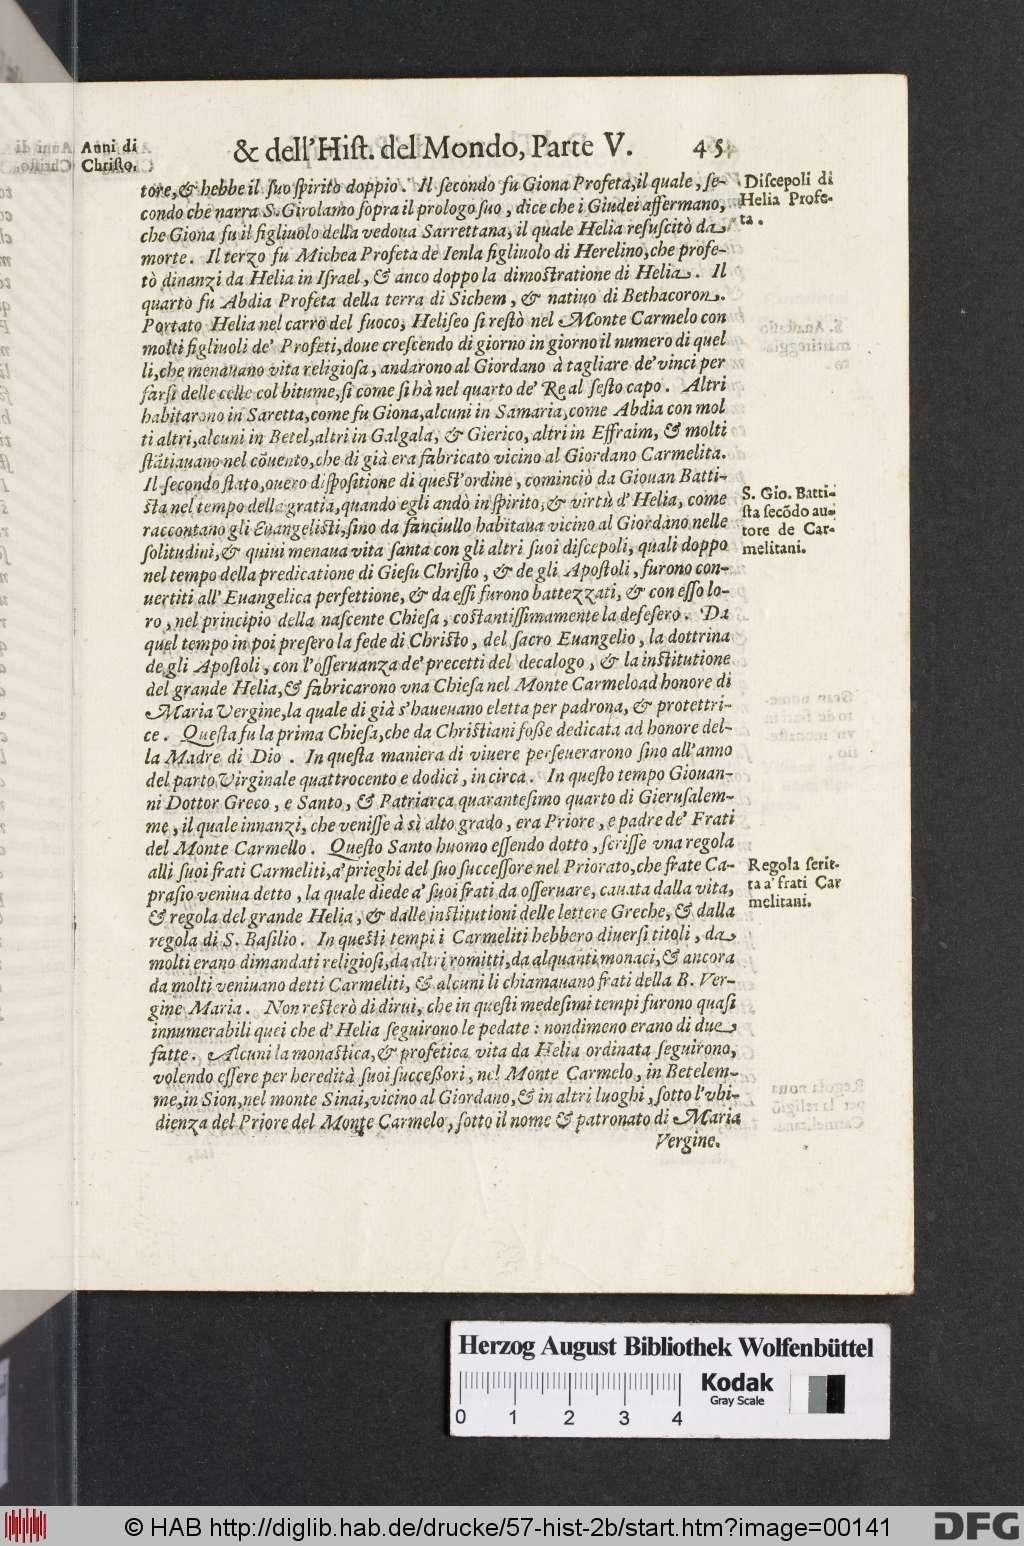 Anni di
Christo.
& dell'Hist. del Mondo, Parte V. 45
tore, & hebbe il suo spirito doppio. Il secondo fu Giona Profeta, il quale, se-
condo che narra S. Girolamo sopra il prologo suo, dice che i Giudei affermano,
che Giona fu il figliuolo della vedoua Sarrettana, il quale Helia resuscitò da
morte. Il terzo fu Michea Profeta de Ienla figliuolo di Herelino, che profe-
tò dinanzi da Helia in Israel, & anco doppo la dimostratione di Helia. Il
quarto fu Abdia Profeta della terra di Sichem, & natiuo di Bethacoron.
Portato Helia nel carro del fuoco, Heliseo si restò nel Monte Carmelo con
molti figliuoli de' Profeti, doue crescendo di giorno in giorno il numero di quel
li, che menauano vita religiosa, andarono al Giordano à tagliare de' vinci per
farsi delle celle col bitume, si come si hà nel quarto de' Re al sesto capo. Altri
habitarono in Saretta, come fu Giona, alcuni in Samaria, come Abdia con mol
ti altri, alcuni in Betel, altri in Galgala, & Gierico, altri in Effraim, & molti
stātiauano nel cōuento, che di già era fabricato vicino al Giordano Carmelita.
Il secondo stato, ouero dispositione di quest'ordine, cominciò da Giouan Batti-
sta nel tempo della gratia, quando egli andò in spirito, & virtù d'Helia, come
raccontano gli Euangelisti, sino da fanciullo habitaua vicino al Giordano nelle
solitudini, & quiui menaua vita santa con gli altri suoi discepoli, quali doppo
nel tempo della predicatione di Giesu Christo, & de gli Apostoli, furono con-
uertiti all'Euangelica perfettione, & da essi furono battezzati, & con esso lo-
ro, nel principio della nascente Chiesa, costantissimamente la defesero. Da
quel tempo in poi presero la fede di Christo, del sacro Euangelio, la dottrina
de gli Apostoli, con l'osseruanza de' precetti del decalogo, & la institutione
del grande Helia, & fabricarono vna Chiesa nel Monte Carmeload honore di
Maria Vergine, la quale di già s'haueuano eletta per padrona, & protettri-
ce. Questa fu la prima Chiesa, che da Christiani fosse dedicata ad honore del-
la Madre di Dio. In questa maniera di viuere perseuerarono sino all'anno
del parto Virginale quattrocento e dodici, in circa. In questo tempo Giouan-
ni Dottor Greco, e Santo, & Patriarca quarantesimo quarto di Gierusalem-
me, il quale innanzi, che venisse à sì alto grado, era Priore, e padre de' Frati
del Monte Carmello. Questo Santo huomo essendo dotto, scrisse vna regola
alli suoi frati Carmeliti, a' prieghi del suo successore nel Priorato, che frate Ca-
prasio veniua detto, la quale diede a' suoi frati da osseruare, cauata dalla vita,
& regola del grande Helia, & dalle institutioni delle lettere Greche, & dalla
regola di S. Basilio. In questi tempi i Carmeliti hebbero diuersi titoli, da
molti erano dimandati religiosi, da altri romitti, da alquanti monaci, & ancora
da molti veniuano detti Carmeliti, & alcuni li chiamauano frati della B. Ver-
gine Maria. Non resterò di dirui, che in questi medesimi tempi furono quasi
innumerabili quei che d'Helia seguirono le pedate: nondimeno erano di due
fatte. Alcuni la monastica, & profetica vita da Helia ordinata seguirono,
volendo essere per heredità suoi successori, nel Monte Carmelo, in Betelem-
me, in Sion, nel monte Sinai, vicino al Giordano, & in altri luoghi, sotto l'vbi-
dienza del Priore del Monte Carmelo, sotto il nome & patronato di Maria
Vergine.
Discepoli di
Helia Profe-
ta.
S. Gio. Batti-
sta secōdo au-
tore de Car-
melitani.
Regola scrit-
ta a' frati Car
melitani.
Herzog August Bibliothek Wolfenbüttel
Kodak
Gray Scale
0 1 2 3 4
© HAB http://diglib.hab.de/drucke/57-hist-2b/start.htm?image=00141
DFG